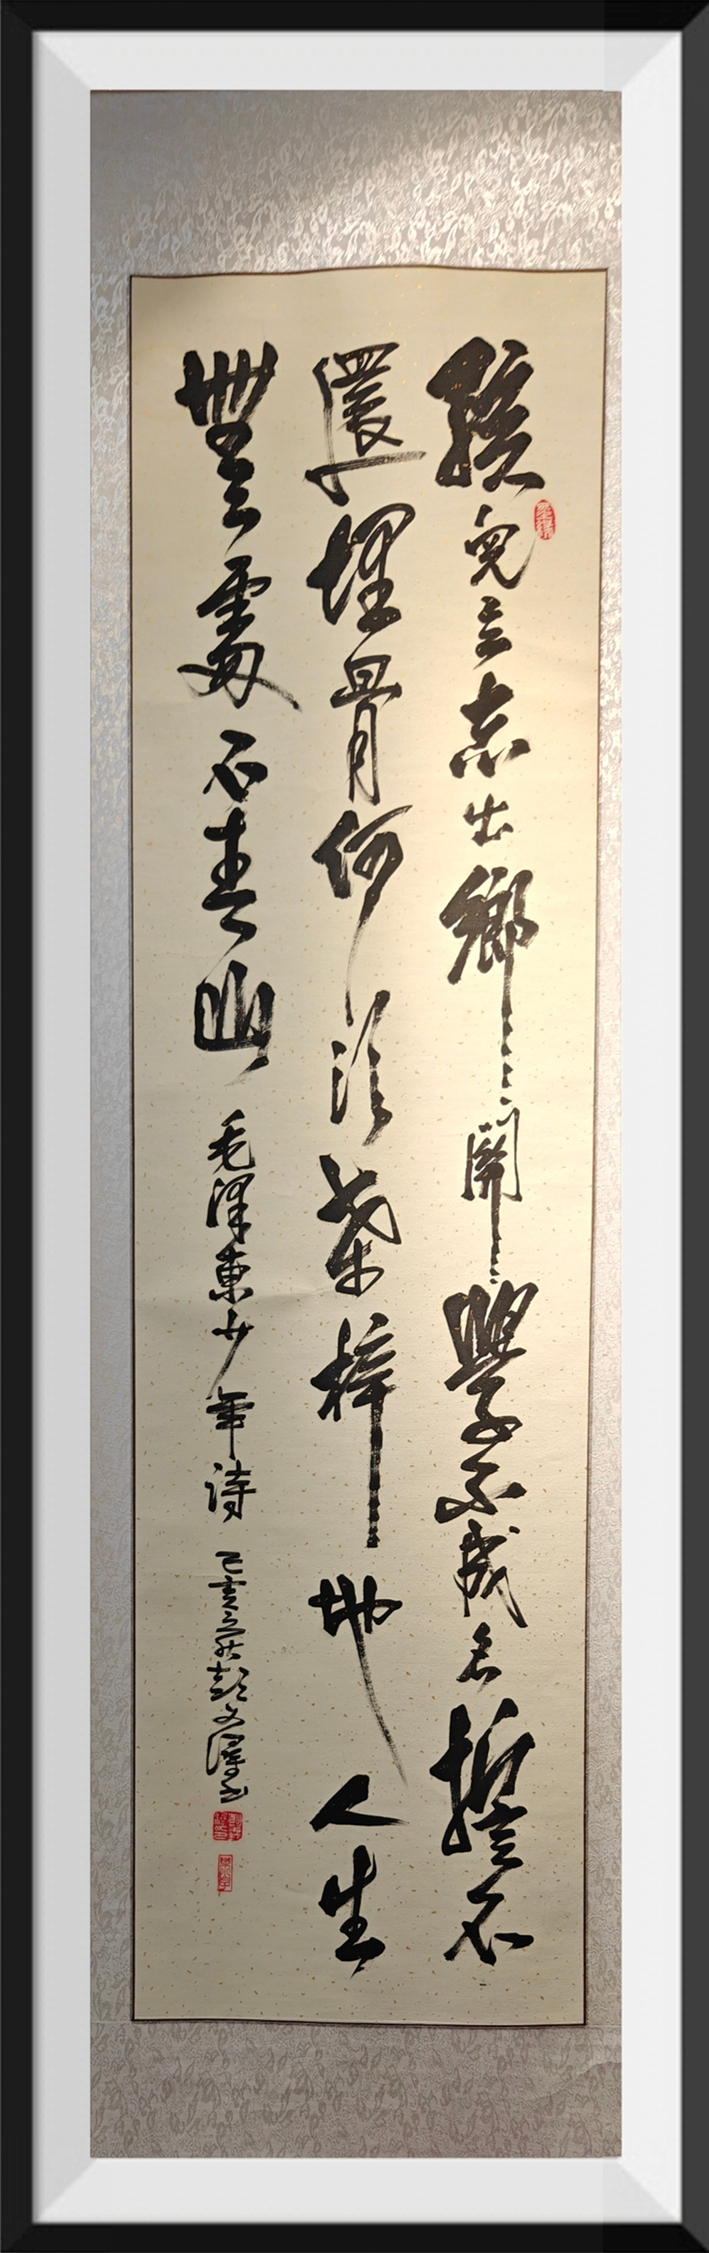 孩兒立志出鄉關學不成名誓不
還埋骨何須桑梓地人生
無處不青山 毛澤東少年詩 己亥之秋彭文澤书